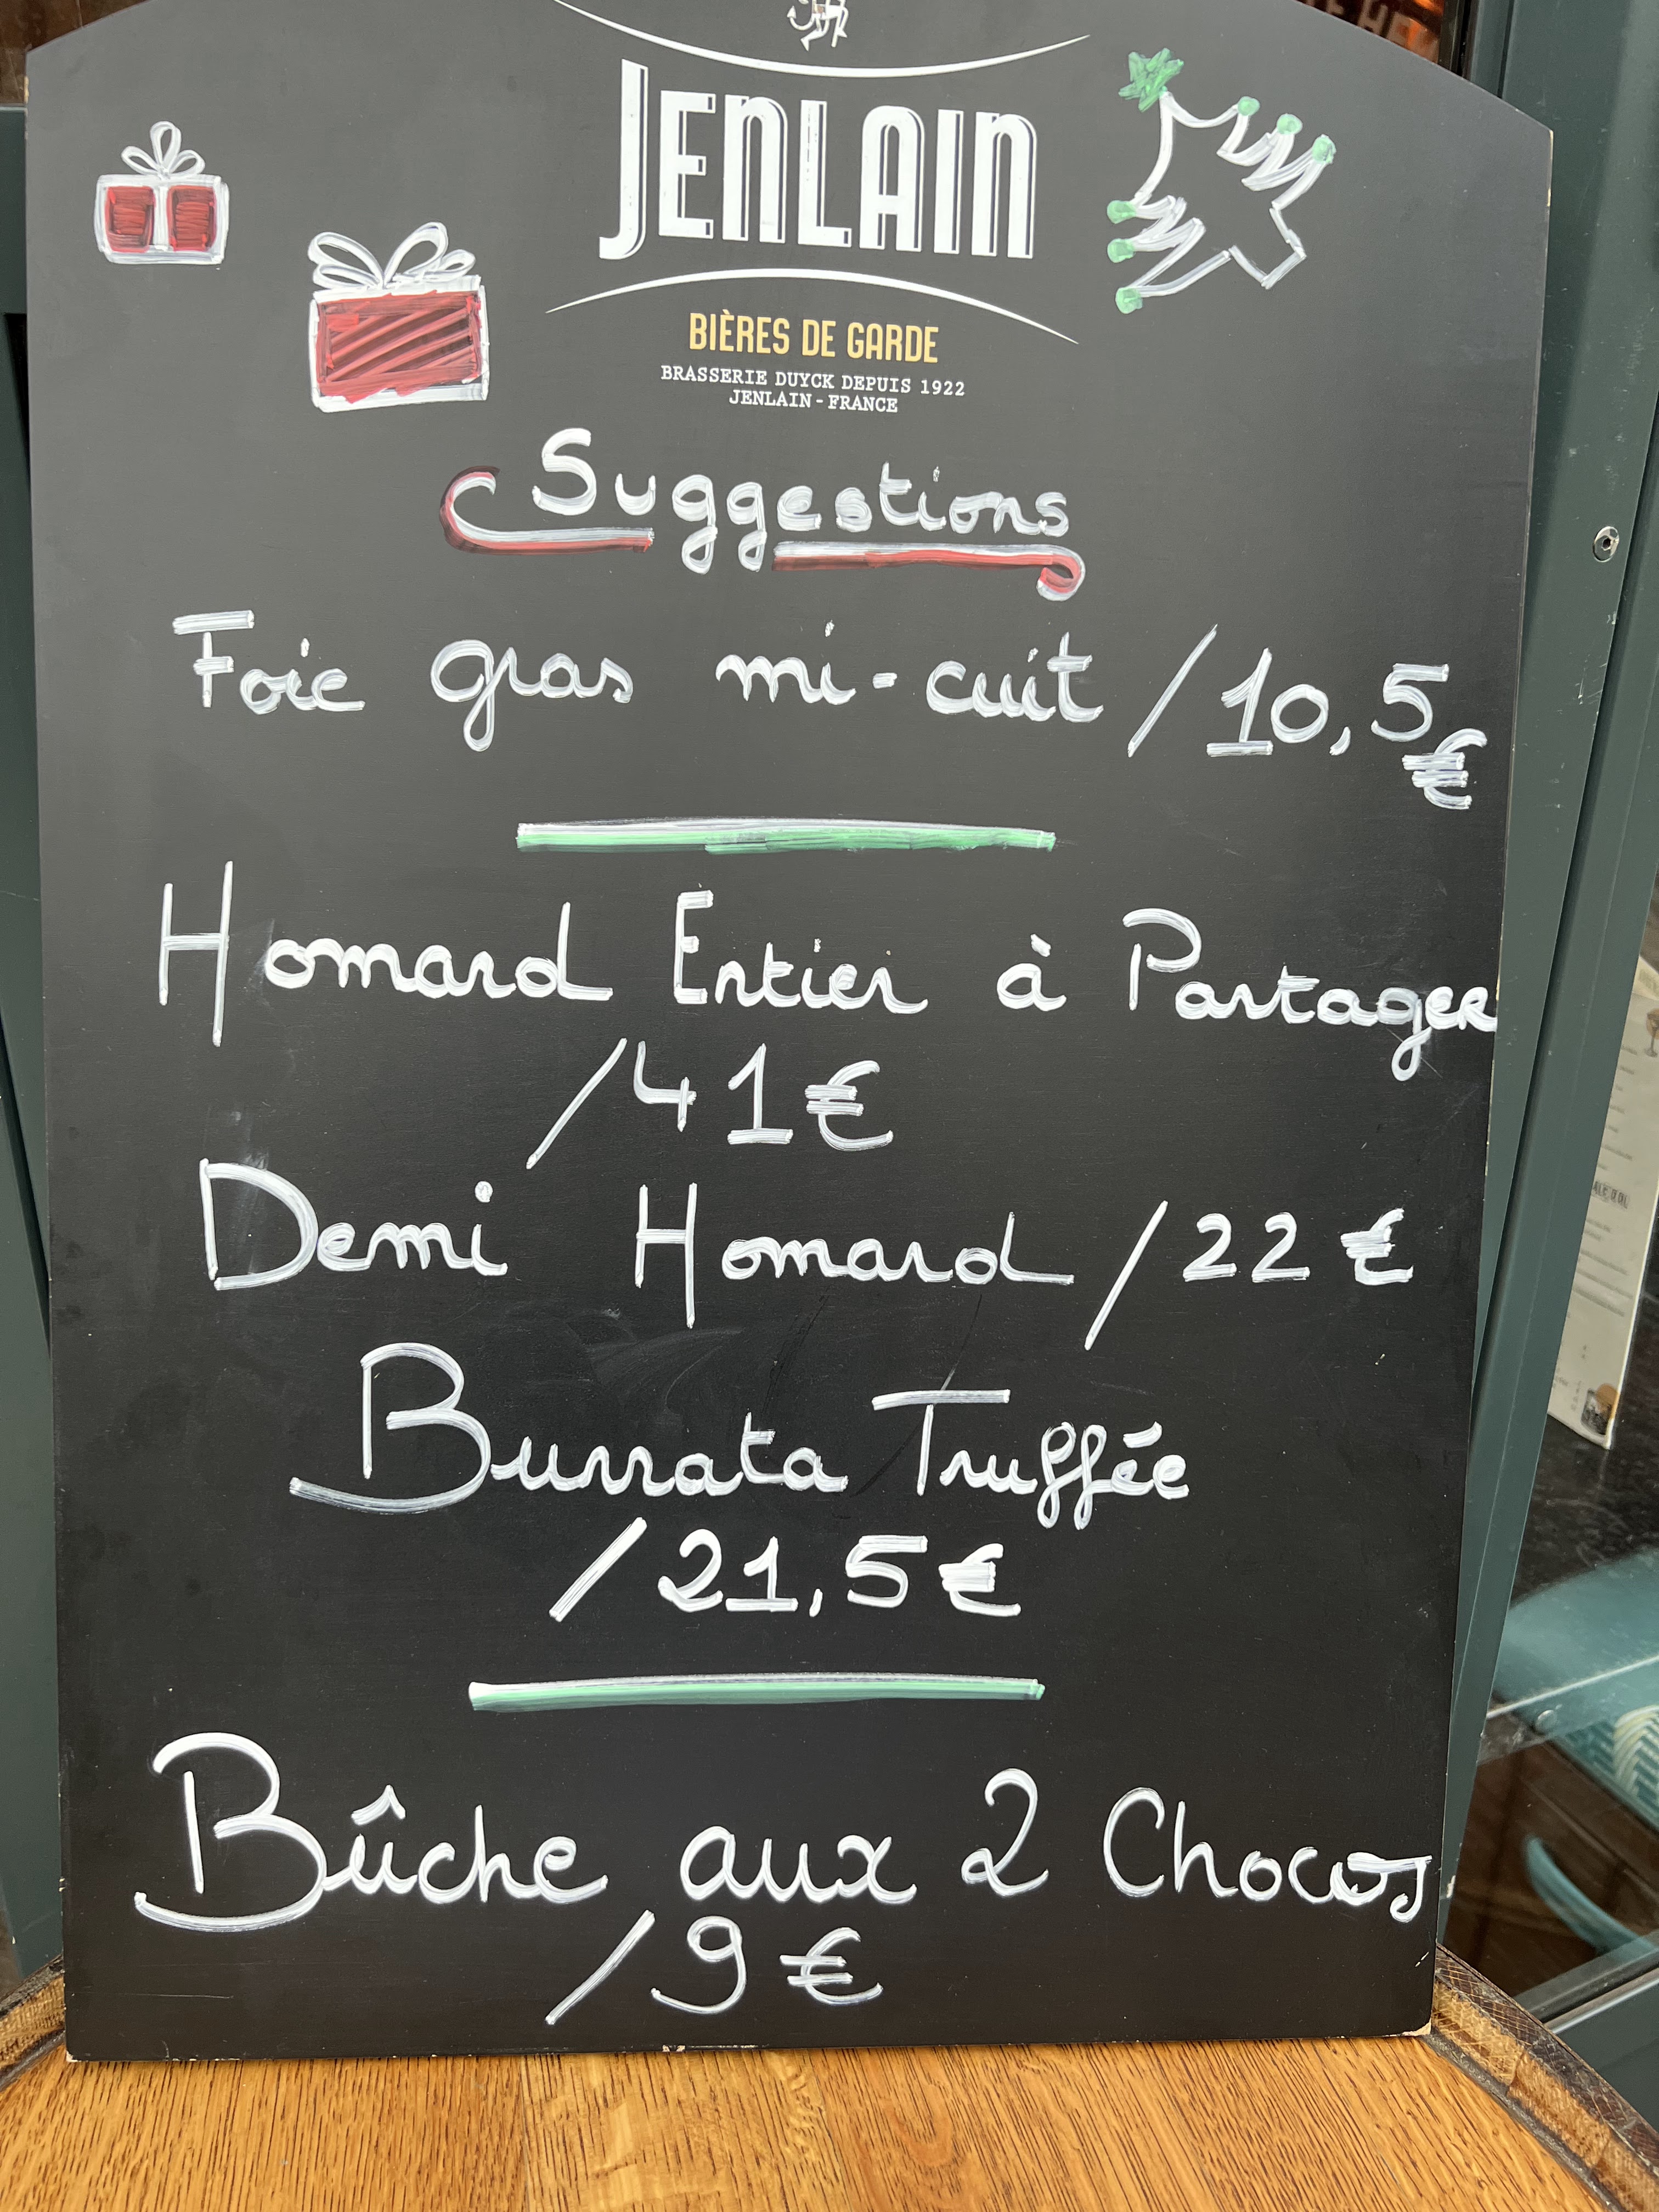 JENLAIN
BIÈRES DE GARDE
BRASSERIE DUYCK DEPUIS 1922
JENLAIN - FRANCE
Suggestions
Foie gras mi-cuit / 10,5
€
Homard Entier à Partager
/41€
Demi Homard / 22 €
Burrata Truffée
/21,5€
Bûche aux 2 Chocos
/9€